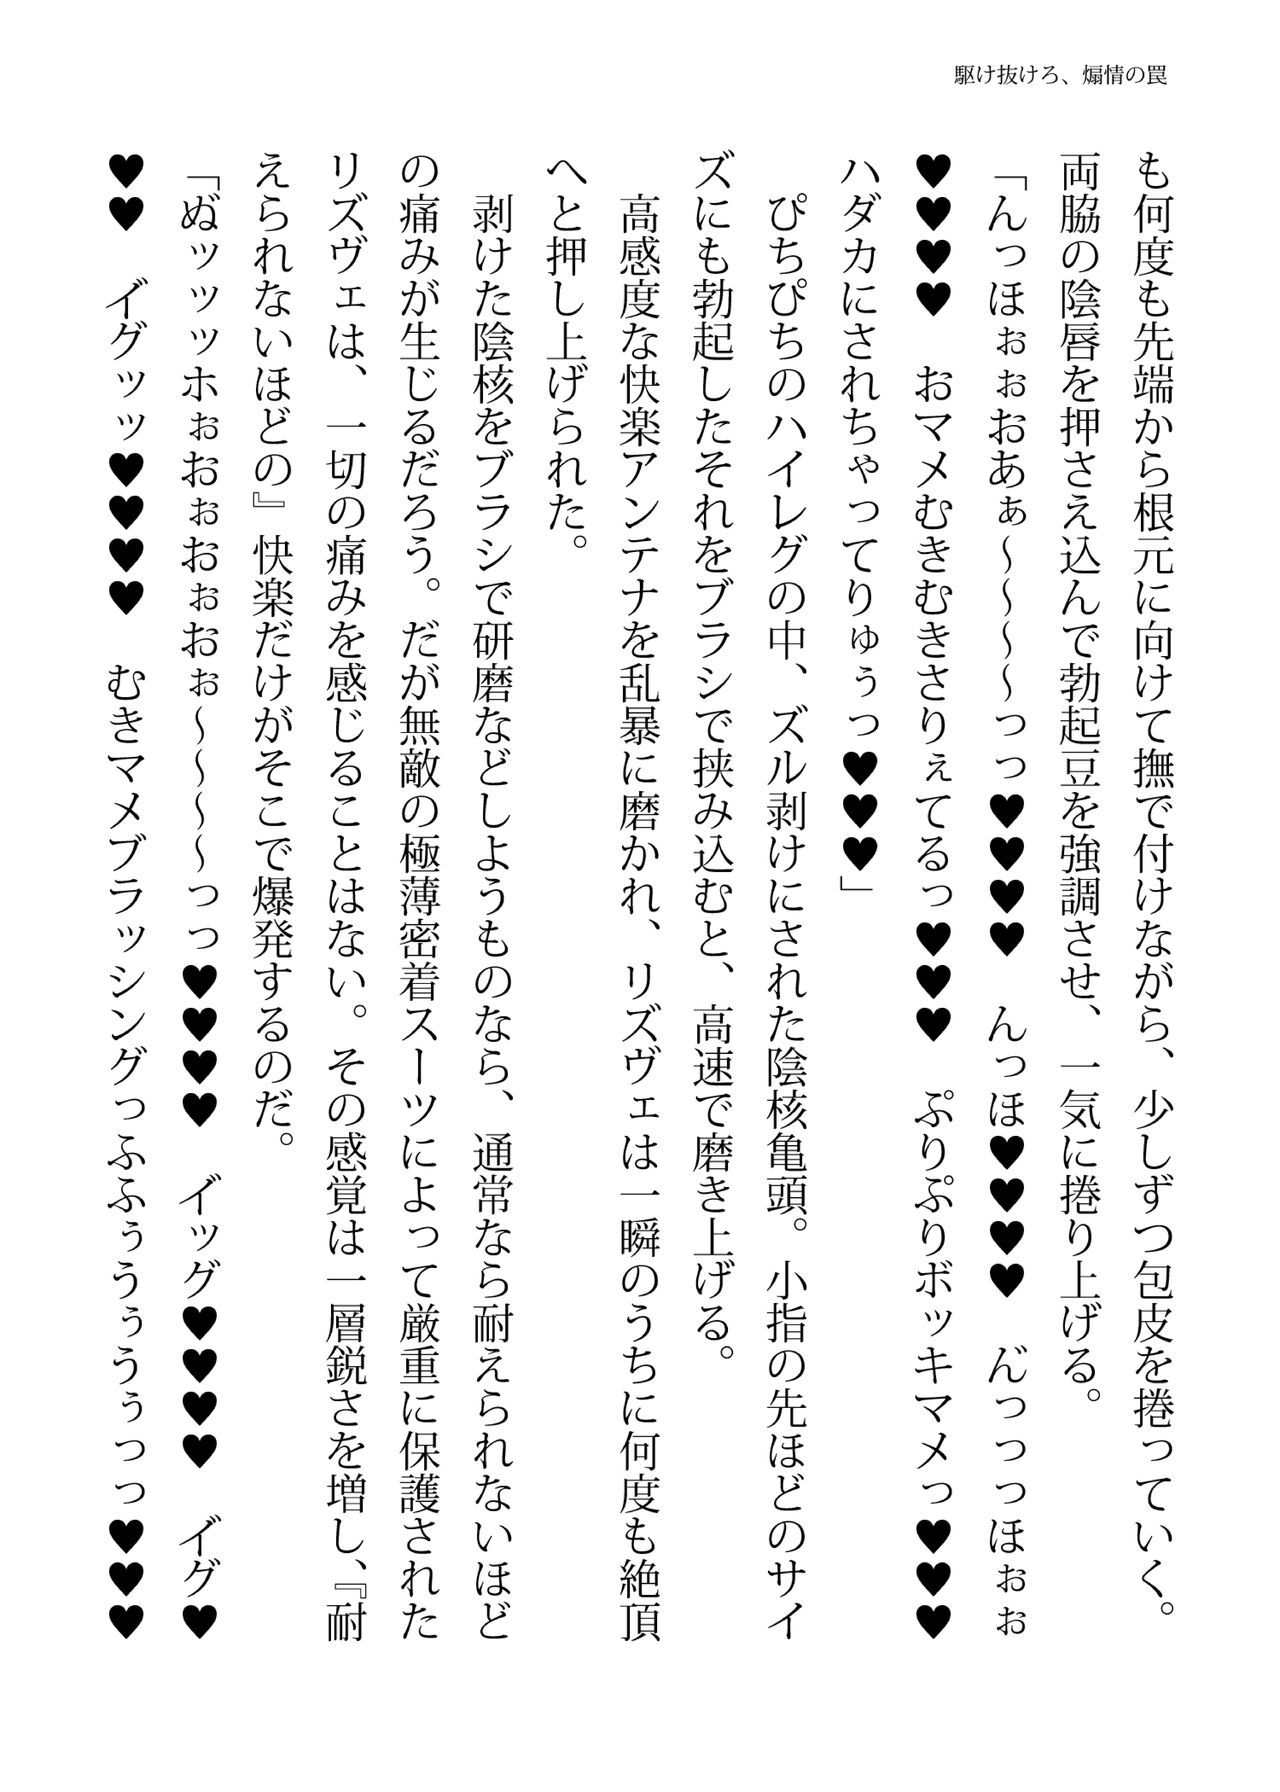 駆け抜けろ、煽情の罠
も何度も先端から根元に向けて撫で付けながら、少しずつ包皮を捲っていく。
両脇の陰唇を押さえ込んで勃起豆を強調させ、一気に捲り上げる。
「んっほぉぉおあぁ～～～～っっ♥♥♥♥　んっほ♥♥♥♥　ん゛っっっほぉぉ
♥♥♥♥　おマメむきむきさりぇてるっ♥♥♥　ぷりぷりボッキマメっ♥♥♥
ハダカにされちゃってりゅぅっ♥♥♥」
　ぴちぴちのハイレグの中、ズル剥けにされた陰核亀頭。小指の先ほどのサイ
ズにも勃起したそれをブラシで挟み込むと、高速で磨き上げる。
　高感度な快楽アンテナを乱暴に磨かれ、リズヴェは一瞬のうちに何度も絶頂
へと押し上げられた。
　剥けた陰核をブラシで研磨などしようものなら、通常なら耐えられないほど
の痛みが生じるだろう。だが無敵の極薄密着スーツによって厳重に保護された
リズヴェは、一切の痛みを感じることはない。その感覚は一層鋭さを増し、『耐
えられないほどの』快楽だけがそこで爆発するのだ。
「ぬ゛ッッッホぉおぉおぉおぉ～～～～っっ♥♥♥♥　イッグ♥♥♥♥　イグ♥
♥♥　イグッッ♥♥♥♥　むきマメブラッシングっふふぅうぅうぅっっ♥♥♥